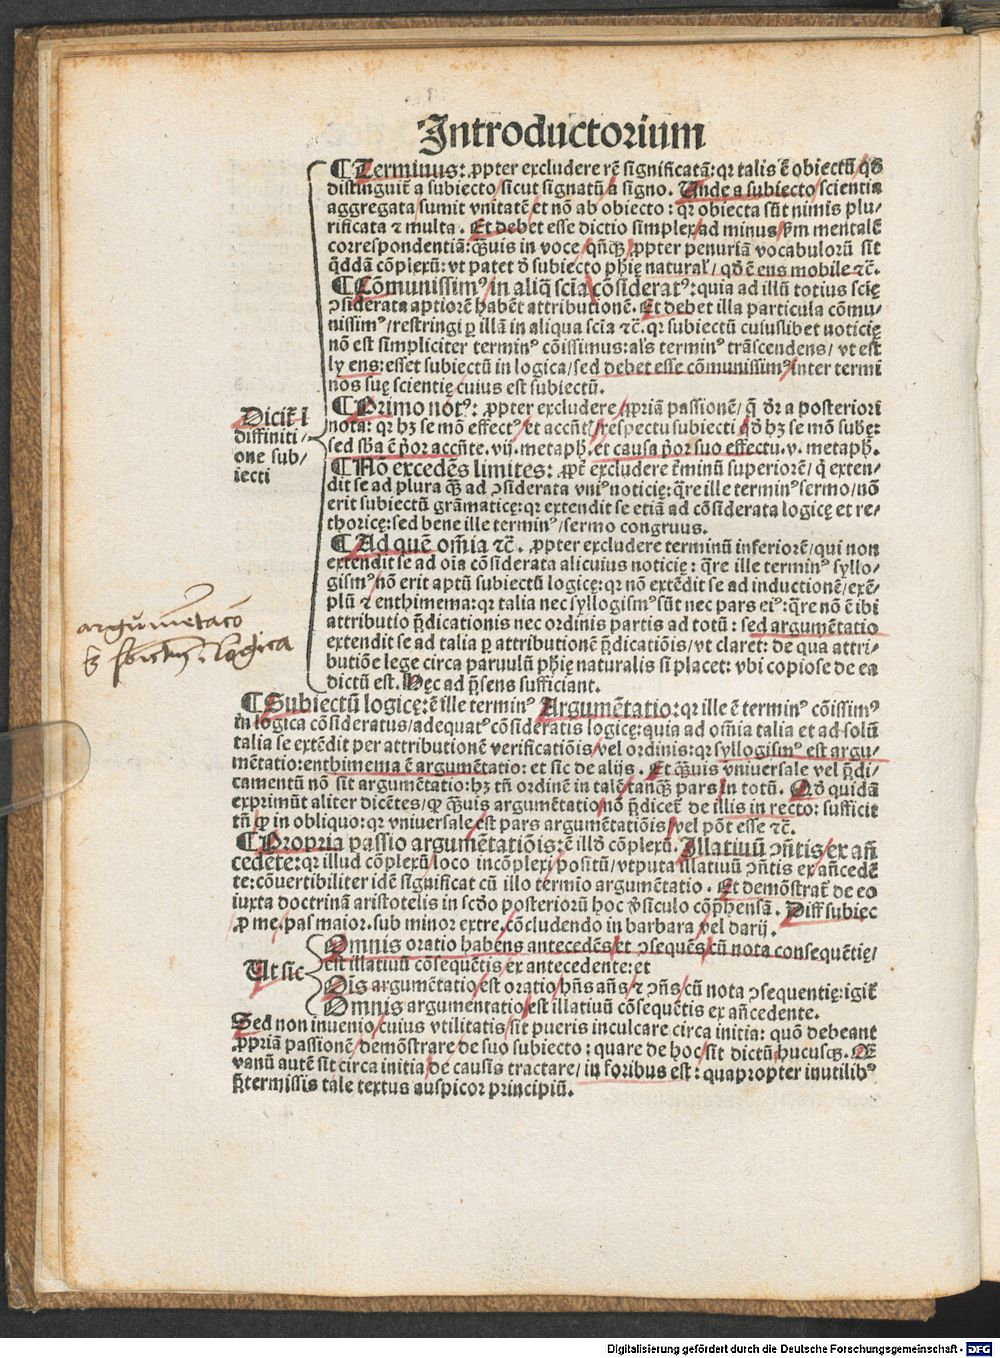 Introductorium
¶ Terminus: ꝓpter excludere rē significatā: qꝛ talis ē obiectū qd̄
distinguit̄ a subiecto/sicut signatū a signo. Unde a subiecto/scientia
aggregata/sumit vnitatē/et nō ab obiecto: qꝛ obiecta sūt nimis plu/
rificata ⁊ multa. Et debet esse dictio simplex/ad minus/ẜm mentalē
correspondentiā: qͣuis in voce/qn̄qꝫ/ꝓpter penuriā vocabulorū sit
q̄ddā cōplexū: vt patet ꝺ̄ subiecto phi̅ę natural̓/qd̄ ē ens mobile ⁊c̄.
¶ Cōmunissimꝰ/in aliq̄ scia/cōsideratꝰ: quia ad illū totius scię
ↄsiderata aptiorē habēt attributionē. Et debet illa particula cōmu/
nissimꝰ/restringi ꝑ illā in aliqua scia ⁊c̄. qꝛ subiectū cuiuslibet noticię
nō est simpliciter terminꝰ cōissimus: als̄ terminꝰ trāscendens/vt est
ly ens: esset subiectū in logica/sed debet esse cōmunissimꝰ/inter termi
nos suę scientię cuius est subiectū.
¶ Primo notꝰ: ꝓpter excludere/ꝓpriā passionē/q̄ d̄r a posteriori
nota: qꝛ hꝫ se mō effectꝰ/et accn̄t̄/respectu subiecti qd̄ hꝫ se mō subę:
sed sb̄a ē p̄or accn̄te. vij. metaph̄. et causa p̄or suo effectu. v. metaph̄.
¶ Nō excedēs limites: ꝓpt̄ excludere t̄minū superiorē/q̄ exten/
dit se ad plura qͣꝫ ad ↄsiderata vniꝰ noticię: q̄re ille terminꝰ sermo/nō
erit subiectū grāmaticę: qꝛ extendit se etiā ad cōsiderata logicę et re/
thoricę: sed bene ille terminꝰ/sermo congruus.
¶ Ad quē om̄ia ⁊c̄. ꝓpter excludere terminū inferiorē/qui non
extendit se ad oi̅a cōsiderata alicuius noticię: q̄re ille terminꝰ syllo/
gismꝰ/nō erit aptū subiectū logicę: qꝛ nō extēdit se ad inductionē/exē/
plū ⁊ enthimema: qꝛ talia nec syllogismꝰ sūt nec pars eiꝰ: q̄re nō ē ibi
attributio p̄dicationis nec ordinis partis ad totū: sed argumētatio
extendit se ad talia ꝑ attributionē p̄dicatiōis/vt claret: de qua attri/
butiōe lege circa paruulū phi̅ę naturalis si placet: vbi copiose de ea
dictū est. Hęc ad p̄sens sufficiant.
Dicit̄ ī
diffiniti/
one sub/
iecti
argūmētacō
ē sb̄iectū ī logica
¶ Subiectū logicę: ē ille terminꝰ Argumētatio: qꝛ ille ē terminꝰ cōissimꝰ
in logica cōsideratus/adequatꝰ cōsideratis logicę: quia ad om̄ia talia et ad solū
talia se extēdit per attributionē verificatiōis/vel ordinis: qꝛ syllogismꝰ est argu/
mētatio: enthimema ē argumētatio: et sic de alijs. Et qͣuis vniuersale vel p̄di/
camentū nō sit argumētatio: hꝫ tn̄ ordinē in talē/tanqͣꝫ pars/in totū. Qd̄ quidā
exprimūt aliter dicētes/ꝙ qͣuis argumētatio/nō p̄dicet̄ de illis in recto: sufficit
tn̄ ꝙ in obliquo: qꝛ vniuersale/est pars argumētatiōis/vel pōt esse ⁊c̄.
¶ Propria passio argumētatiōis: ē illd̄ cōplexū. Illatiuū ↄn̄tis/ex an̄
cedēte: qꝛ illud cōplexū/loco incōplexi positū/vtputa illatiuū ↄn̄tis ex an̄cedē
te: cōuertibiliter idē significat cū illo termio argumētatio. Et demōstrat̄ de eo
iuxta doctrinā aristotelis in scd̄o posteriorū hoc v̄siculo cōp̄hensā. Diff subiec
ꝓ me. pas maior. sub minor extre. cōcludendo in barbara vel darij.
Ut sic
Omnis oratio habens antecedēs/et ↄsequēs/cū nota consequētię/
est illatiuū cōsequētis/ex antecedente: et
Oīs argumētatio/est oratio/hn̄s an̄s/⁊ ↄn̄s/cū nota ↄsequentię: igit̄
Omnis argumentatio/est illatiuū cōsequētis ex an̄cedente.
Sed non inuenio/cuius vtilitatis/sit pueris inculcare circa initia: quō debeant
ꝓpriā passionē/demōstrare de suo subiecto: quare de hoc/sit dictū hucusqꝫ. Et
vanū autē sit circa initia/de causis tractare/in foribus est: quapropter inutilibꝰ
p̄termissis tale textus auspicor principiū.
Digitalisierung gefördert durch die Deutsche Forschungsgemeinschaft - DFG